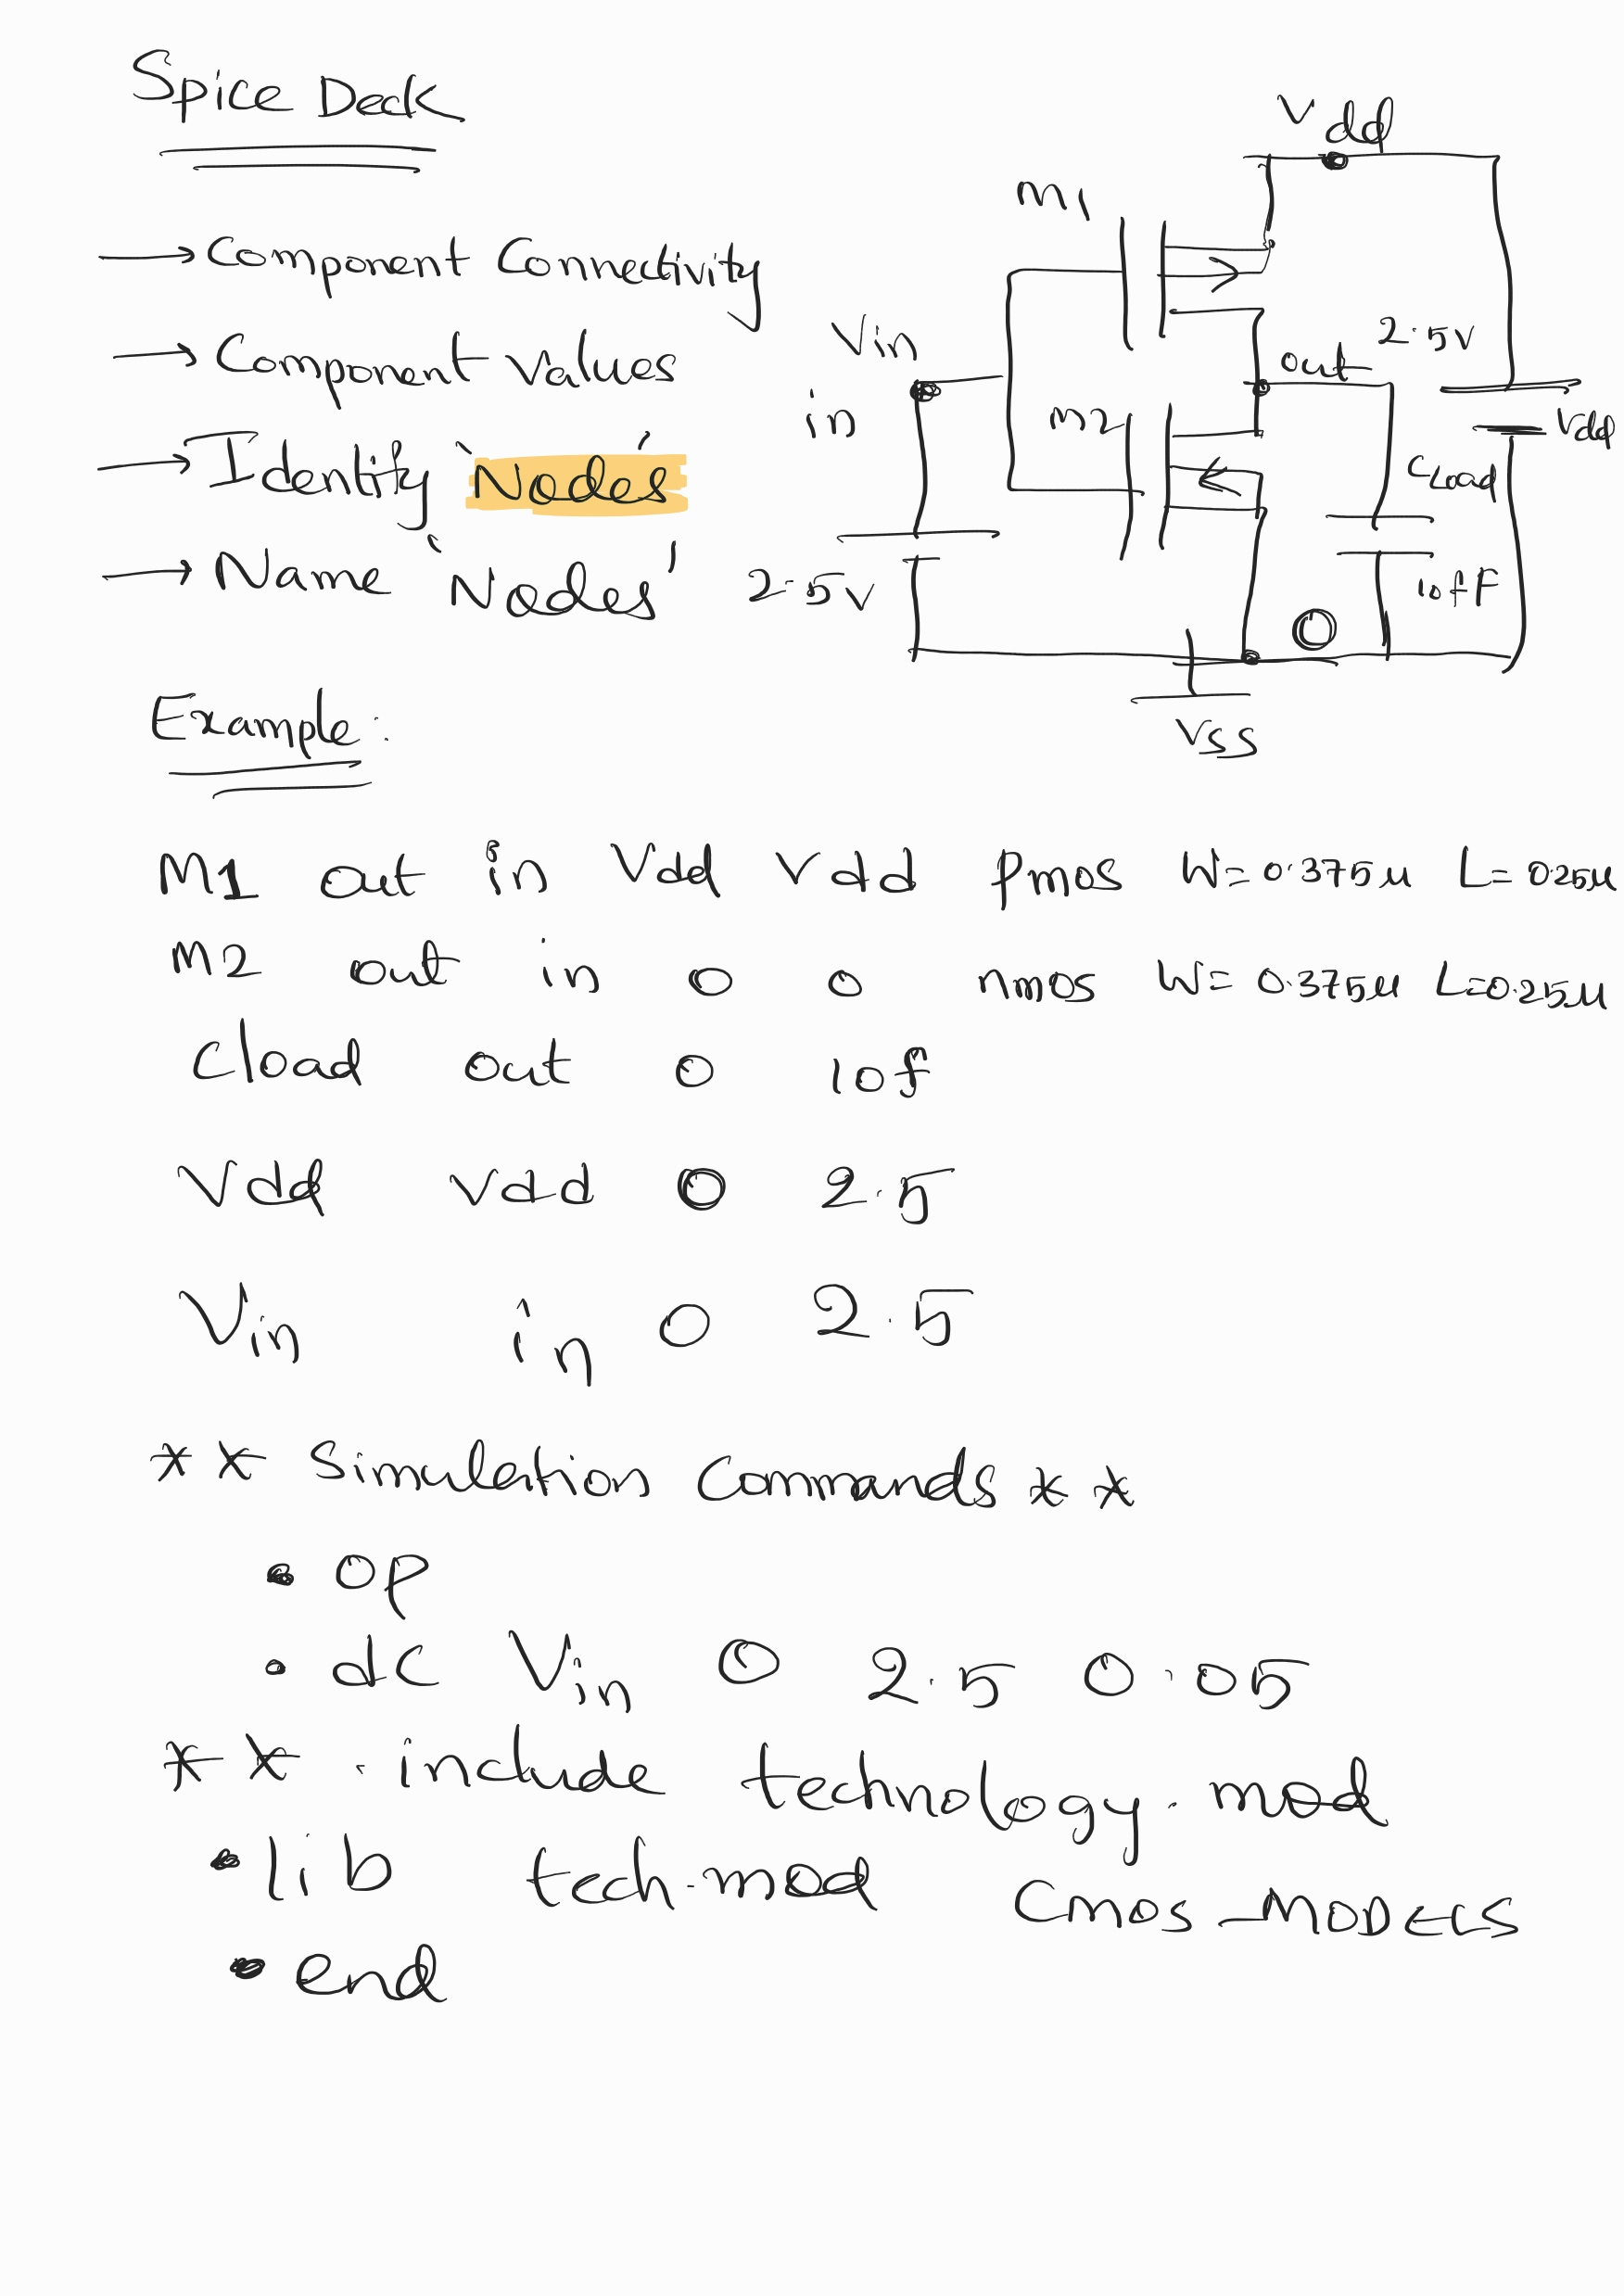 Spice Deck
→ Component Connectivity
→ Component values
→ Identify 'Nodes'
→ Name 'Nodes'
Vdd
M1
Vin
in
M2
out
2.5V
Vdd
Cload
10fF
2.5V
0
Vss
Example:
M1 out in Vdd Vdd pmos W=0.375µ L=0.25µ
M2 out in 0 0 nmos W=0.375µ L=0.25µ
Cload out 0 10f
Vdd Vdd 0 2.5
Vin in 0 2.5
** Simulation Commands **
.op
.dc Vin 0 2.5 0.05
** .include technology.mod
.lib tech.mod CMOS_MODELS
.end